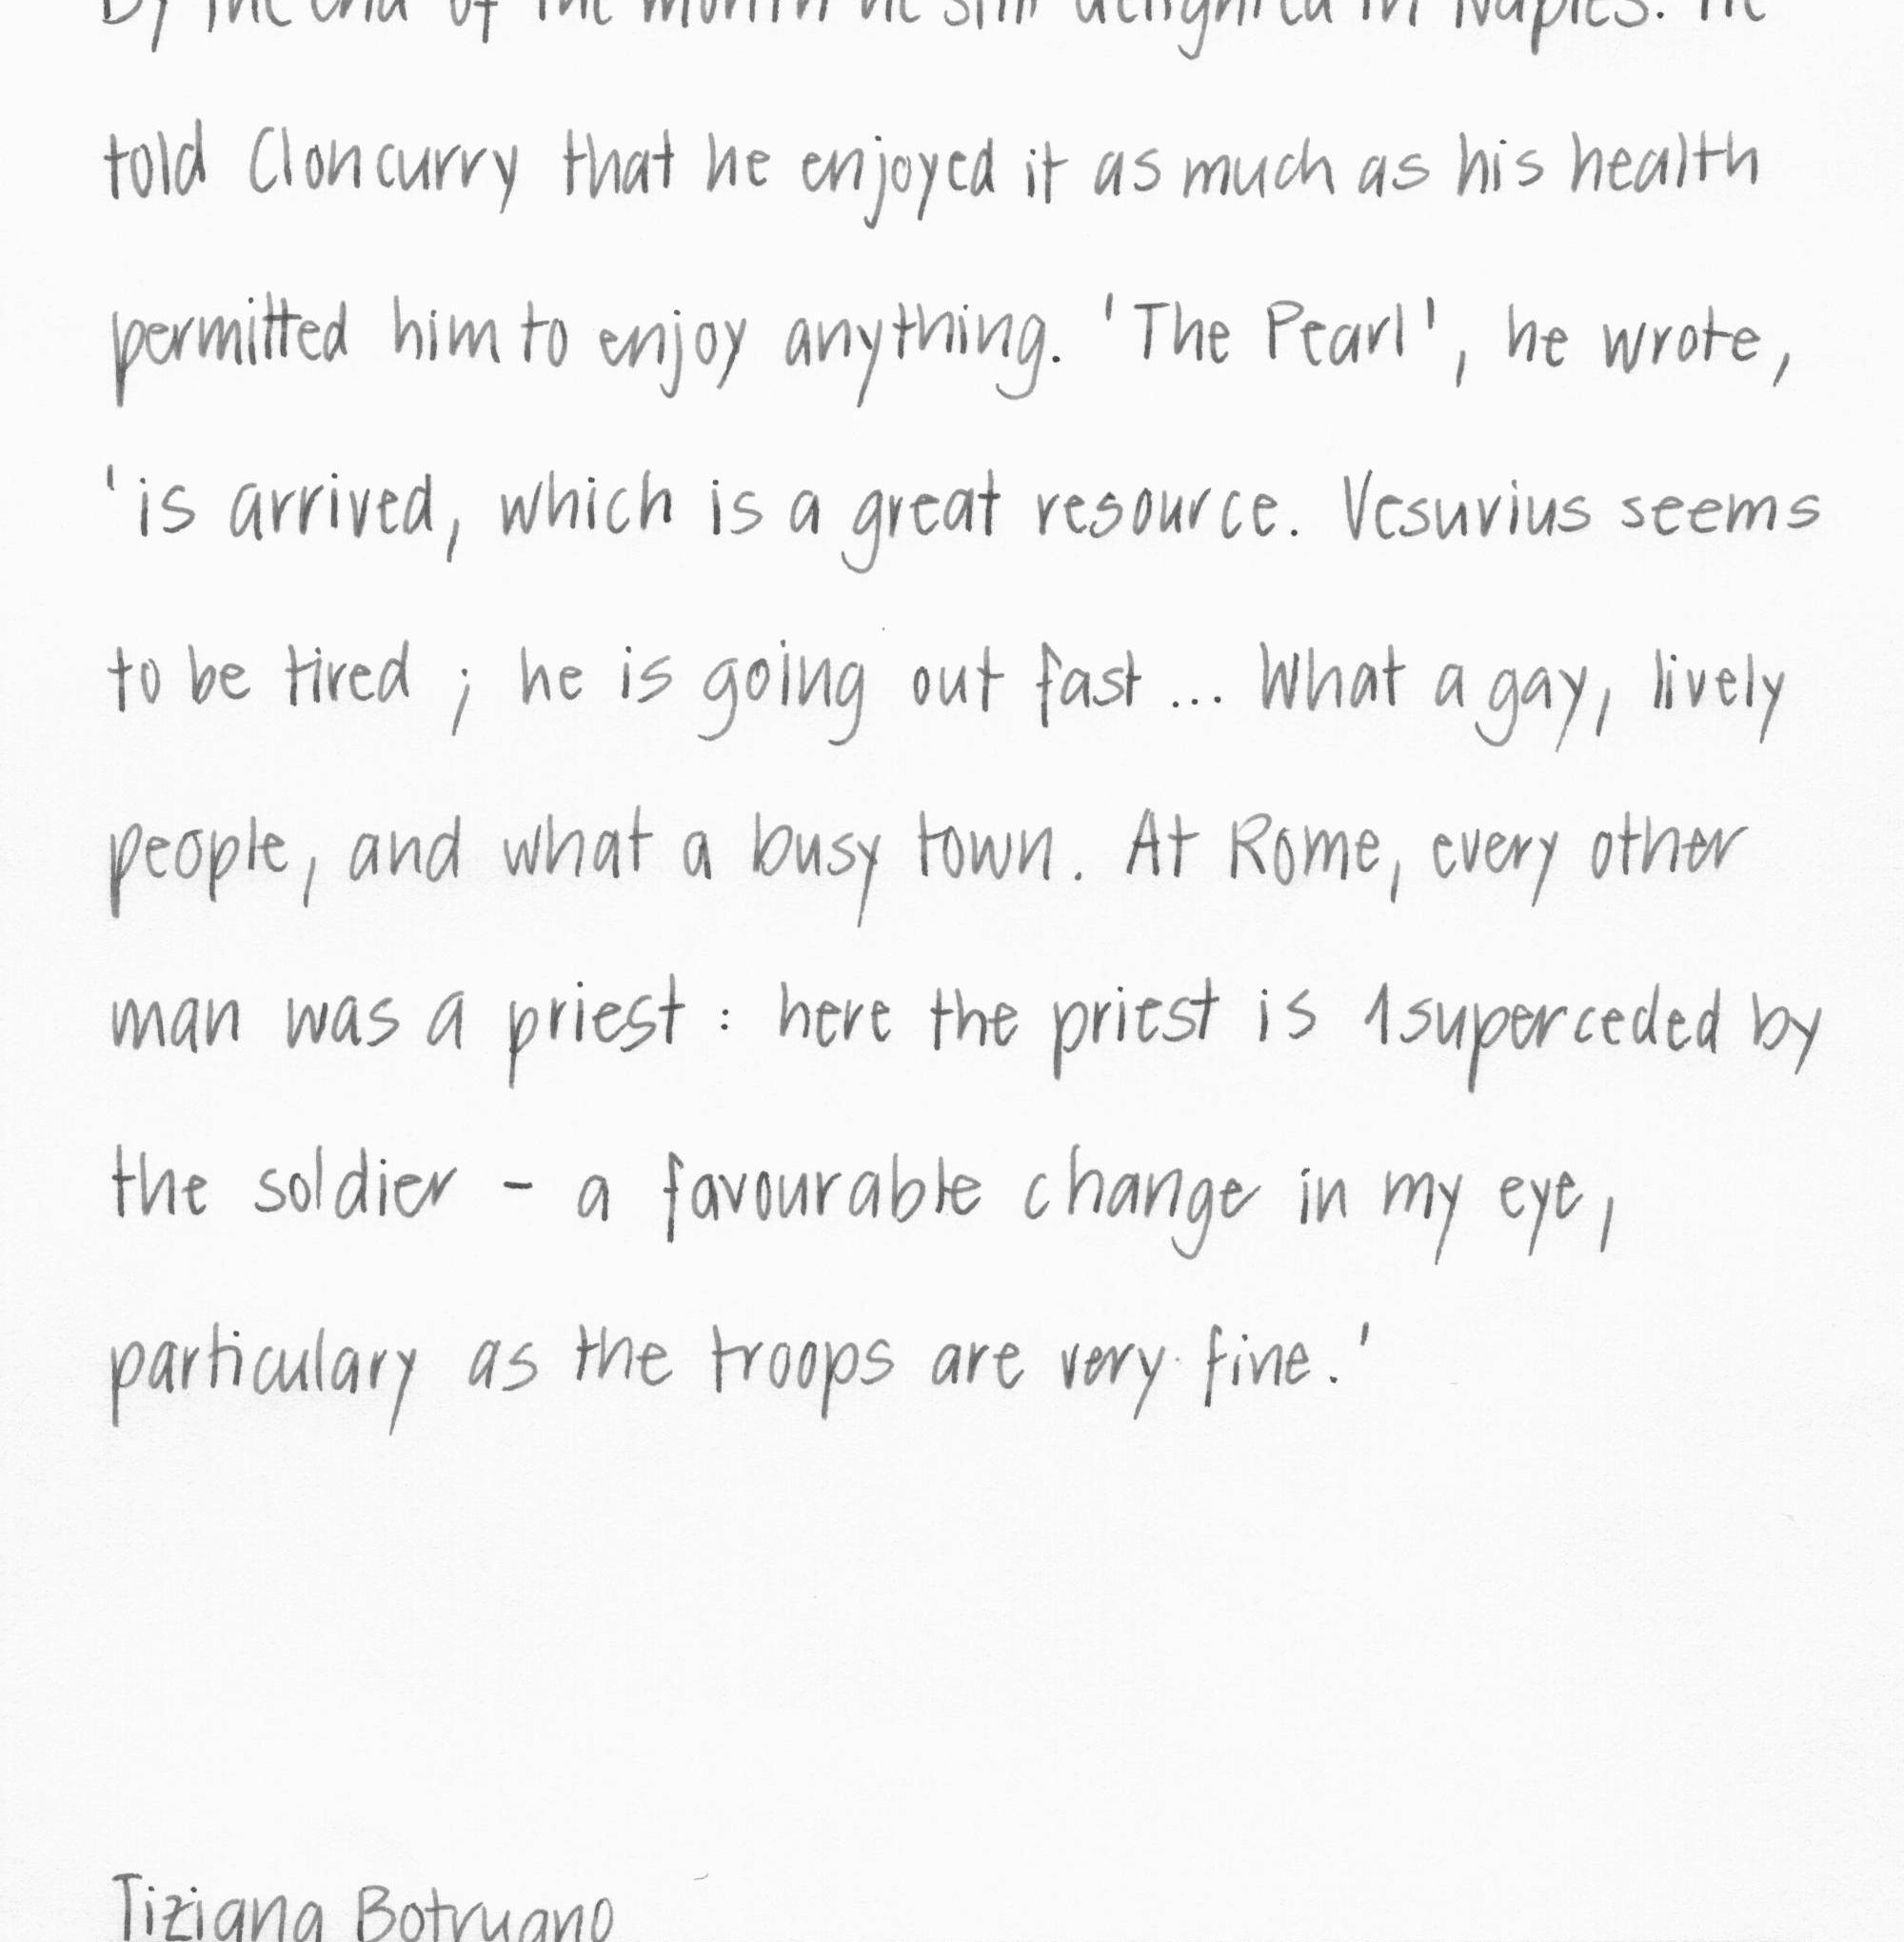 By the end of the month he still delighted in Naples. He
told Cloncurry that he enjoyed it as much as his health
permitted him to enjoy anything. 'The Pearl', he wrote,
'is arrived, which is a great resource. Vesuvius seems
to be tired ; he is going out fast ... What a gay, lively
people, and what a busy town. At Rome, every other
man was a priest : here the priest is 1superceded by
the soldier - a favourable change in my eye,
particulary as the troops are very fine.'
Tiziana Botrugno